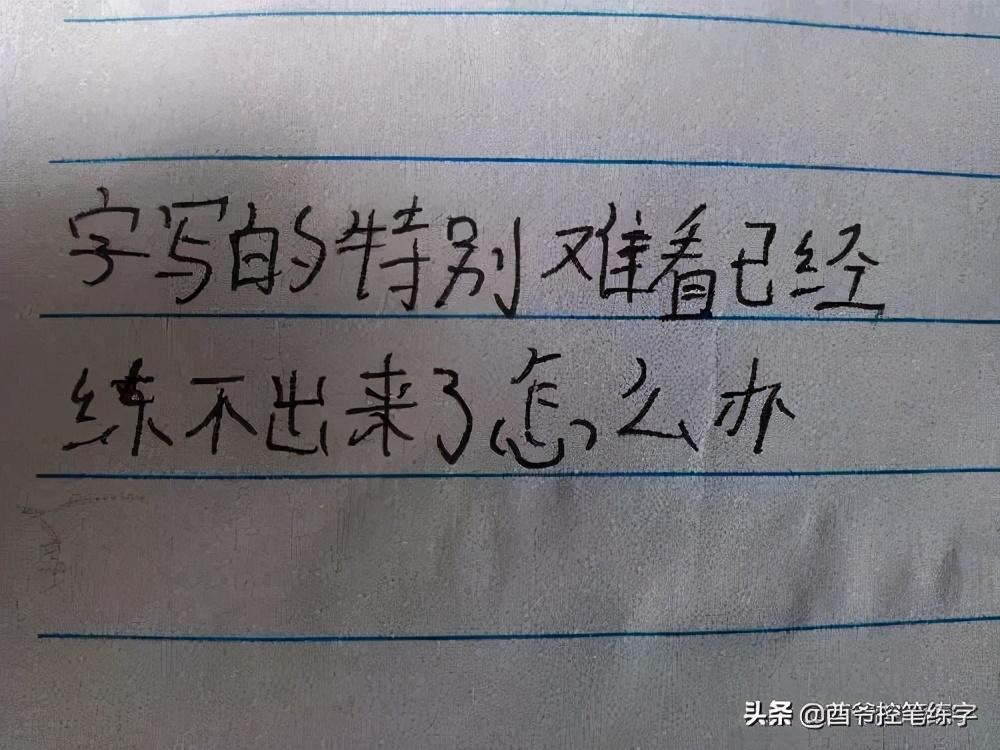 字写的特别难看已经
练不出来了怎么办
头条 @酉爷控笔练字